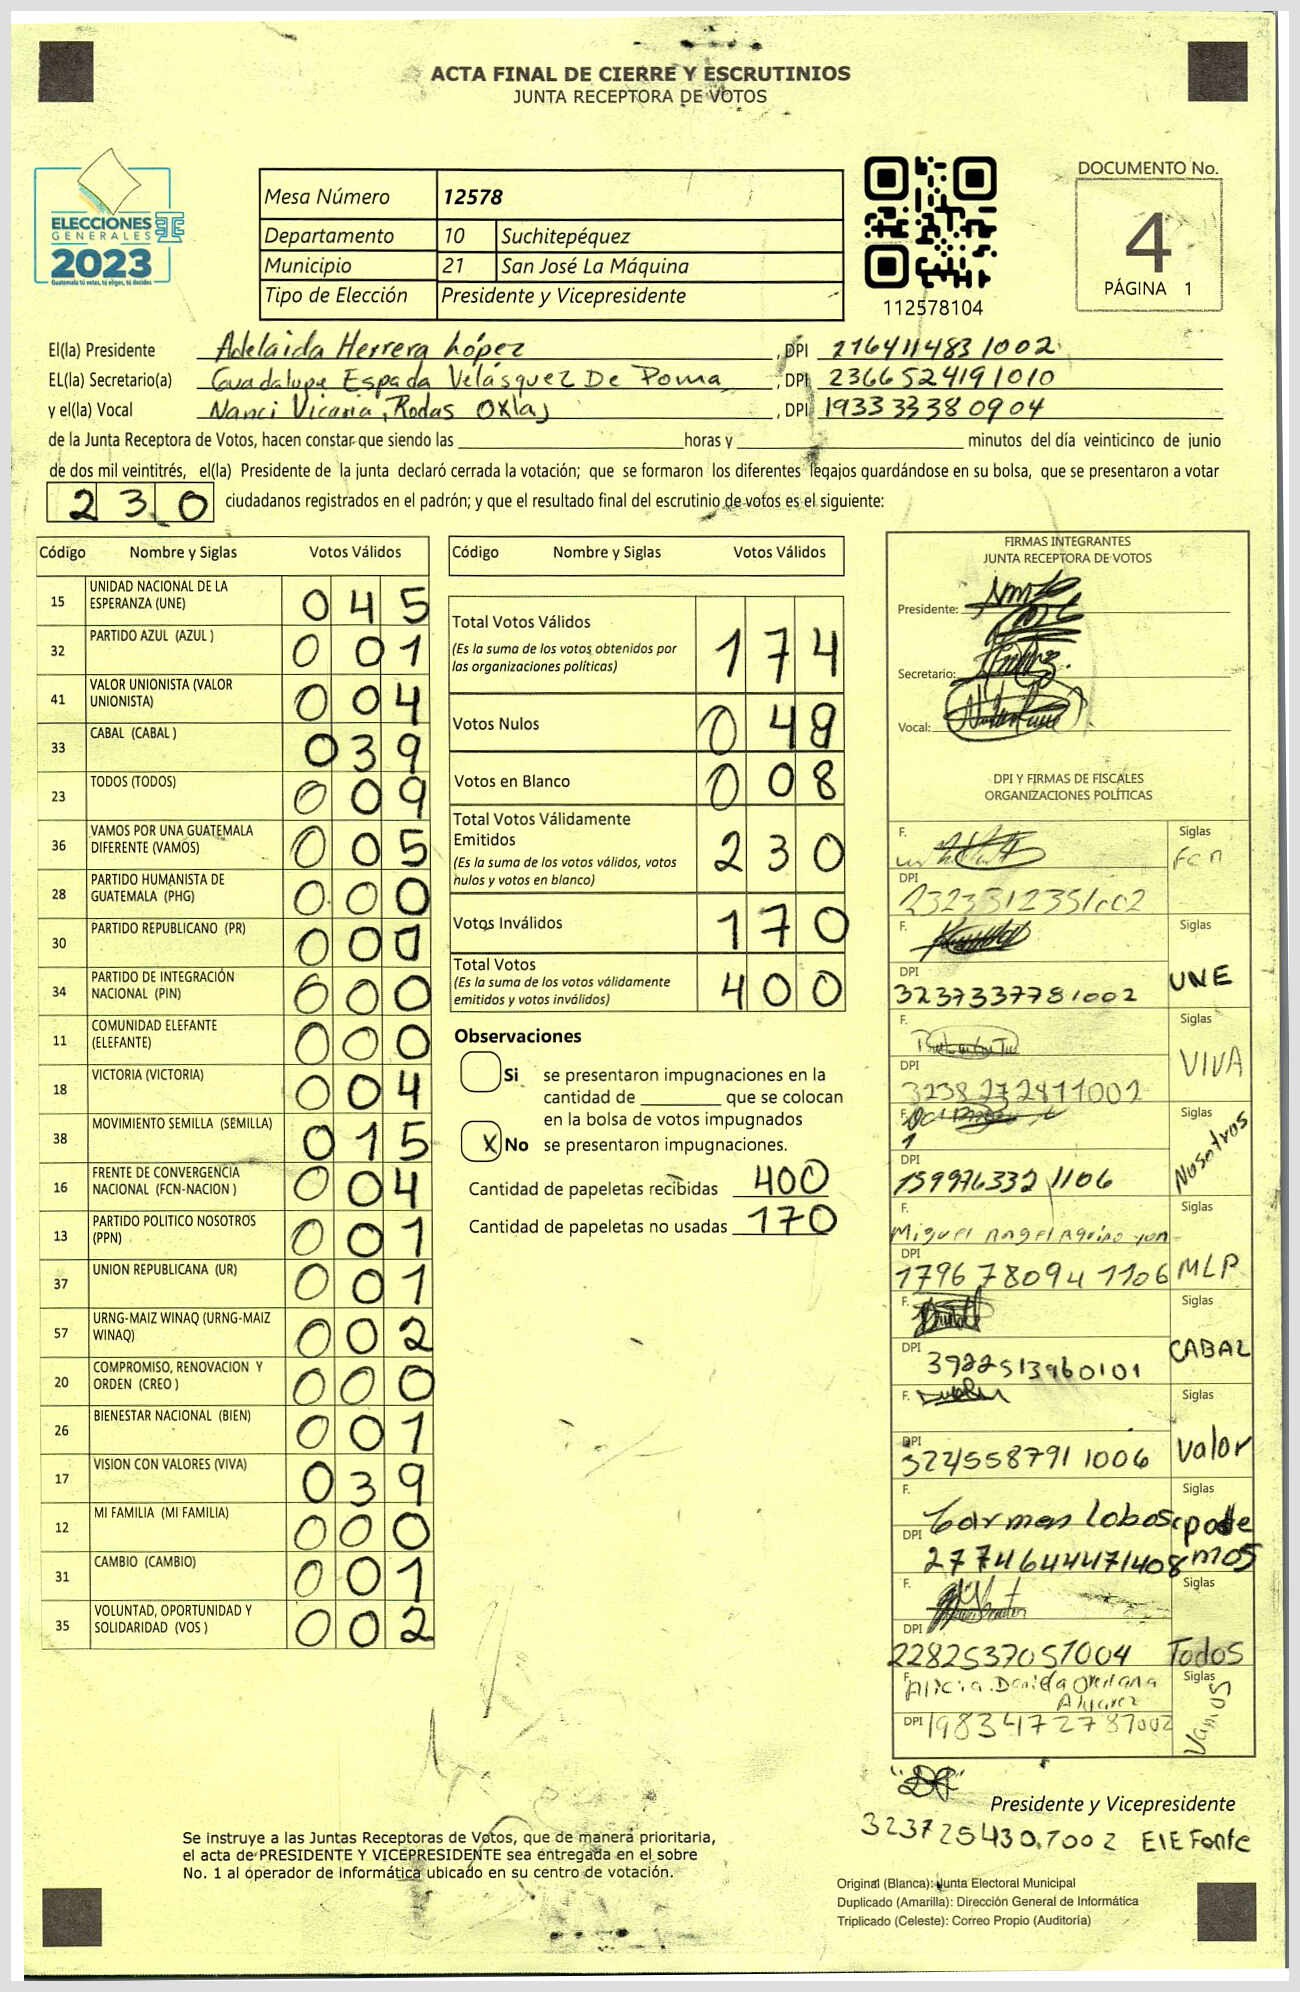 ACTA FINAL DE CIERRE Y ESCRUTINIOS
JUNTA RECEPTORA DE VOTOS
ELECCIONES
GENERALES
2023
Guatemala tú votas, tú eliges, tú decides
Mesa Número 12578
Departamento 10 Suchitepéquez
Municipio 21 San José La Máquina
Tipo de Elección Presidente y Vicepresidente
112578104
DOCUMENTO No.
4
PÁGINA 1
El(la) Presidente Adelaida Herrera López , DPI 2164114831002
EL(la) Secretario(a) Guadalupe Espada Velásquez De Poma , DPI 2366524191010
y el(la) Vocal Nanci Vicaria, Rodas Oxlaj , DPI 193333380904
de la Junta Receptora de Votos, hacen constar que siendo las horas y minutos del día veinticinco de junio
de dos mil veintitrés, el(la) Presidente de la junta declaró cerrada la votación; que se formaron los diferentes legajos guardándose en su bolsa, que se presentaron a votar
230 ciudadanos registrados en el padrón; y que el resultado final del escrutinio de votos es el siguiente:
Código Nombre y Siglas Votos Válidos
15 UNIDAD NACIONAL DE LA ESPERANZA (UNE) 045
32 PARTIDO AZUL (AZUL ) 001
41 VALOR UNIONISTA (VALOR UNIONISTA) 004
33 CABAL (CABAL ) 039
23 TODOS (TODOS) 009
36 VAMOS POR UNA GUATEMALA DIFERENTE (VAMOS) 005
28 PARTIDO HUMANISTA DE GUATEMALA (PHG) 000
30 PARTIDO REPUBLICANO (PR) 000
34 PARTIDO DE INTEGRACIÓN NACIONAL (PIN) 000
11 COMUNIDAD ELEFANTE (ELEFANTE) 000
18 VICTORIA (VICTORIA) 004
38 MOVIMIENTO SEMILLA (SEMILLA) 015
16 FRENTE DE CONVERGENCIA NACIONAL (FCN-NACION ) 004
13 PARTIDO POLITICO NOSOTROS (PPN) 001
37 UNION REPUBLICANA (UR) 001
57 URNG-MAIZ WINAQ (URNG-MAIZ WINAQ) 002
20 COMPROMISO, RENOVACION Y ORDEN (CREO ) 000
26 BIENESTAR NACIONAL (BIEN) 001
17 VISION CON VALORES (VIVA) 039
12 MI FAMILIA (MI FAMILIA) 000
31 CAMBIO (CAMBIO) 001
35 VOLUNTAD, OPORTUNIDAD Y SOLIDARIDAD (VOS ) 002
Código Nombre y Siglas Votos Válidos
Total Votos Válidos 174
(Es la suma de los votos obtenidos por
las organizaciones políticas)
Votos Nulos 048
Votos en Blanco 008
Total Votos Válidamente
Emitidos 230
(Es la suma de los votos válidos, votos
nulos y votos en blanco)
Votos Inválidos 170
Total Votos 400
(Es la suma de los votos válidamente
emitidos y votos inválidos)
Observaciones
Si se presentaron impugnaciones en la
cantidad de que se colocan
en la bolsa de votos impugnados
X No se presentaron impugnaciones.
Cantidad de papeletas recibidas 400
Cantidad de papeletas no usadas 170
FIRMAS INTEGRANTES
JUNTA RECEPTORA DE VOTOS
Presidente:
Secretario:
Vocal:
DPI Y FIRMAS DE FISCALES
ORGANIZACIONES POLÍTICAS
F. Siglas fcn
DPI 2323512351002
F. Siglas UNE
DPI 3237337781002
F. Siglas VIVA
DPI 3238272411002
F. Siglas Nosotros
DPI 159976332 1106
F. Miguel Angel Aquino yon Siglas MLP
DPI 1796780941106
F. Siglas CABAL
DPI 3922513960101
F. Siglas Valor
DPI 3224558791 1006
F. Carmen Lobos Siglas podemos
DPI 2774644471408
F. Siglas Todos
DPI 2282537051004
F. Alicia Daniela Orellana Alvarez Siglas Vamos
DPI 1983472781002
Presidente y Vicepresidente
3237254301002 ElEFante
Se instruye a las Juntas Receptoras de Votos, que de manera prioritaria,
el acta de PRESIDENTE Y VICEPRESIDENTE sea entregada en el sobre
No. 1 al operador de informática ubicado en su centro de votación.
Original (Blanca): Junta Electoral Municipal
Duplicado (Amarilla): Dirección General de Informática
Triplicado (Celeste): Correo Propio (Auditoría)